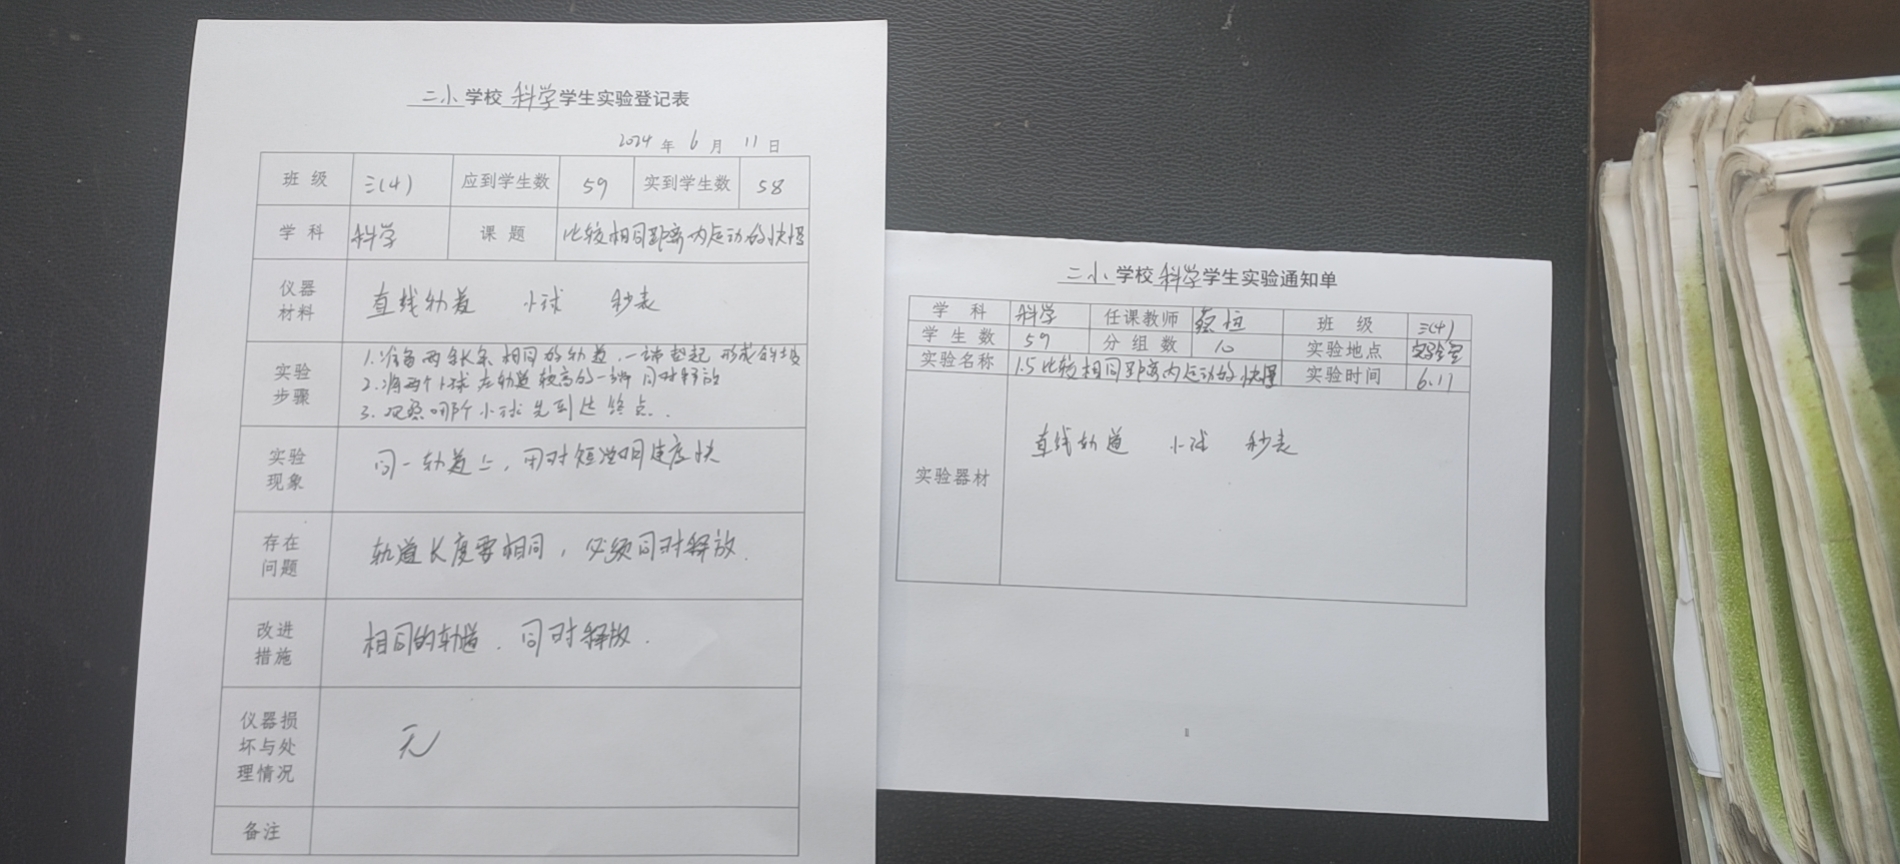 二小学校科学学生实验登记表
2024年6月11日
班级 三(4) 应到学生数 59 实到学生数 58
学科 科学 课题 比较相同距离内运动的快慢
仪器材料 直线轨道 小球 秒表
实验步骤 1.准备两条长度相同的轨道,一端垫起形成斜坡
2.将两个小球在轨道较高的一端同时释放
3.观察哪个小球先到达终点.
实验现象 同一轨道上,用时短说明速度快
存在问题 轨道长度要相同,必须同时释放.
改进措施 相同的轨道.同时释放.
仪器损坏与处理情况 无
备注
二小学校科学学生实验通知单
学科 科学 任课教师 班级 三(4)
学生数 59 分组数 10 实验地点 实验室
实验名称 1.5比较相同距离内运动的快慢 实验时间 6.11
实验器材 直线轨道 小球 秒表